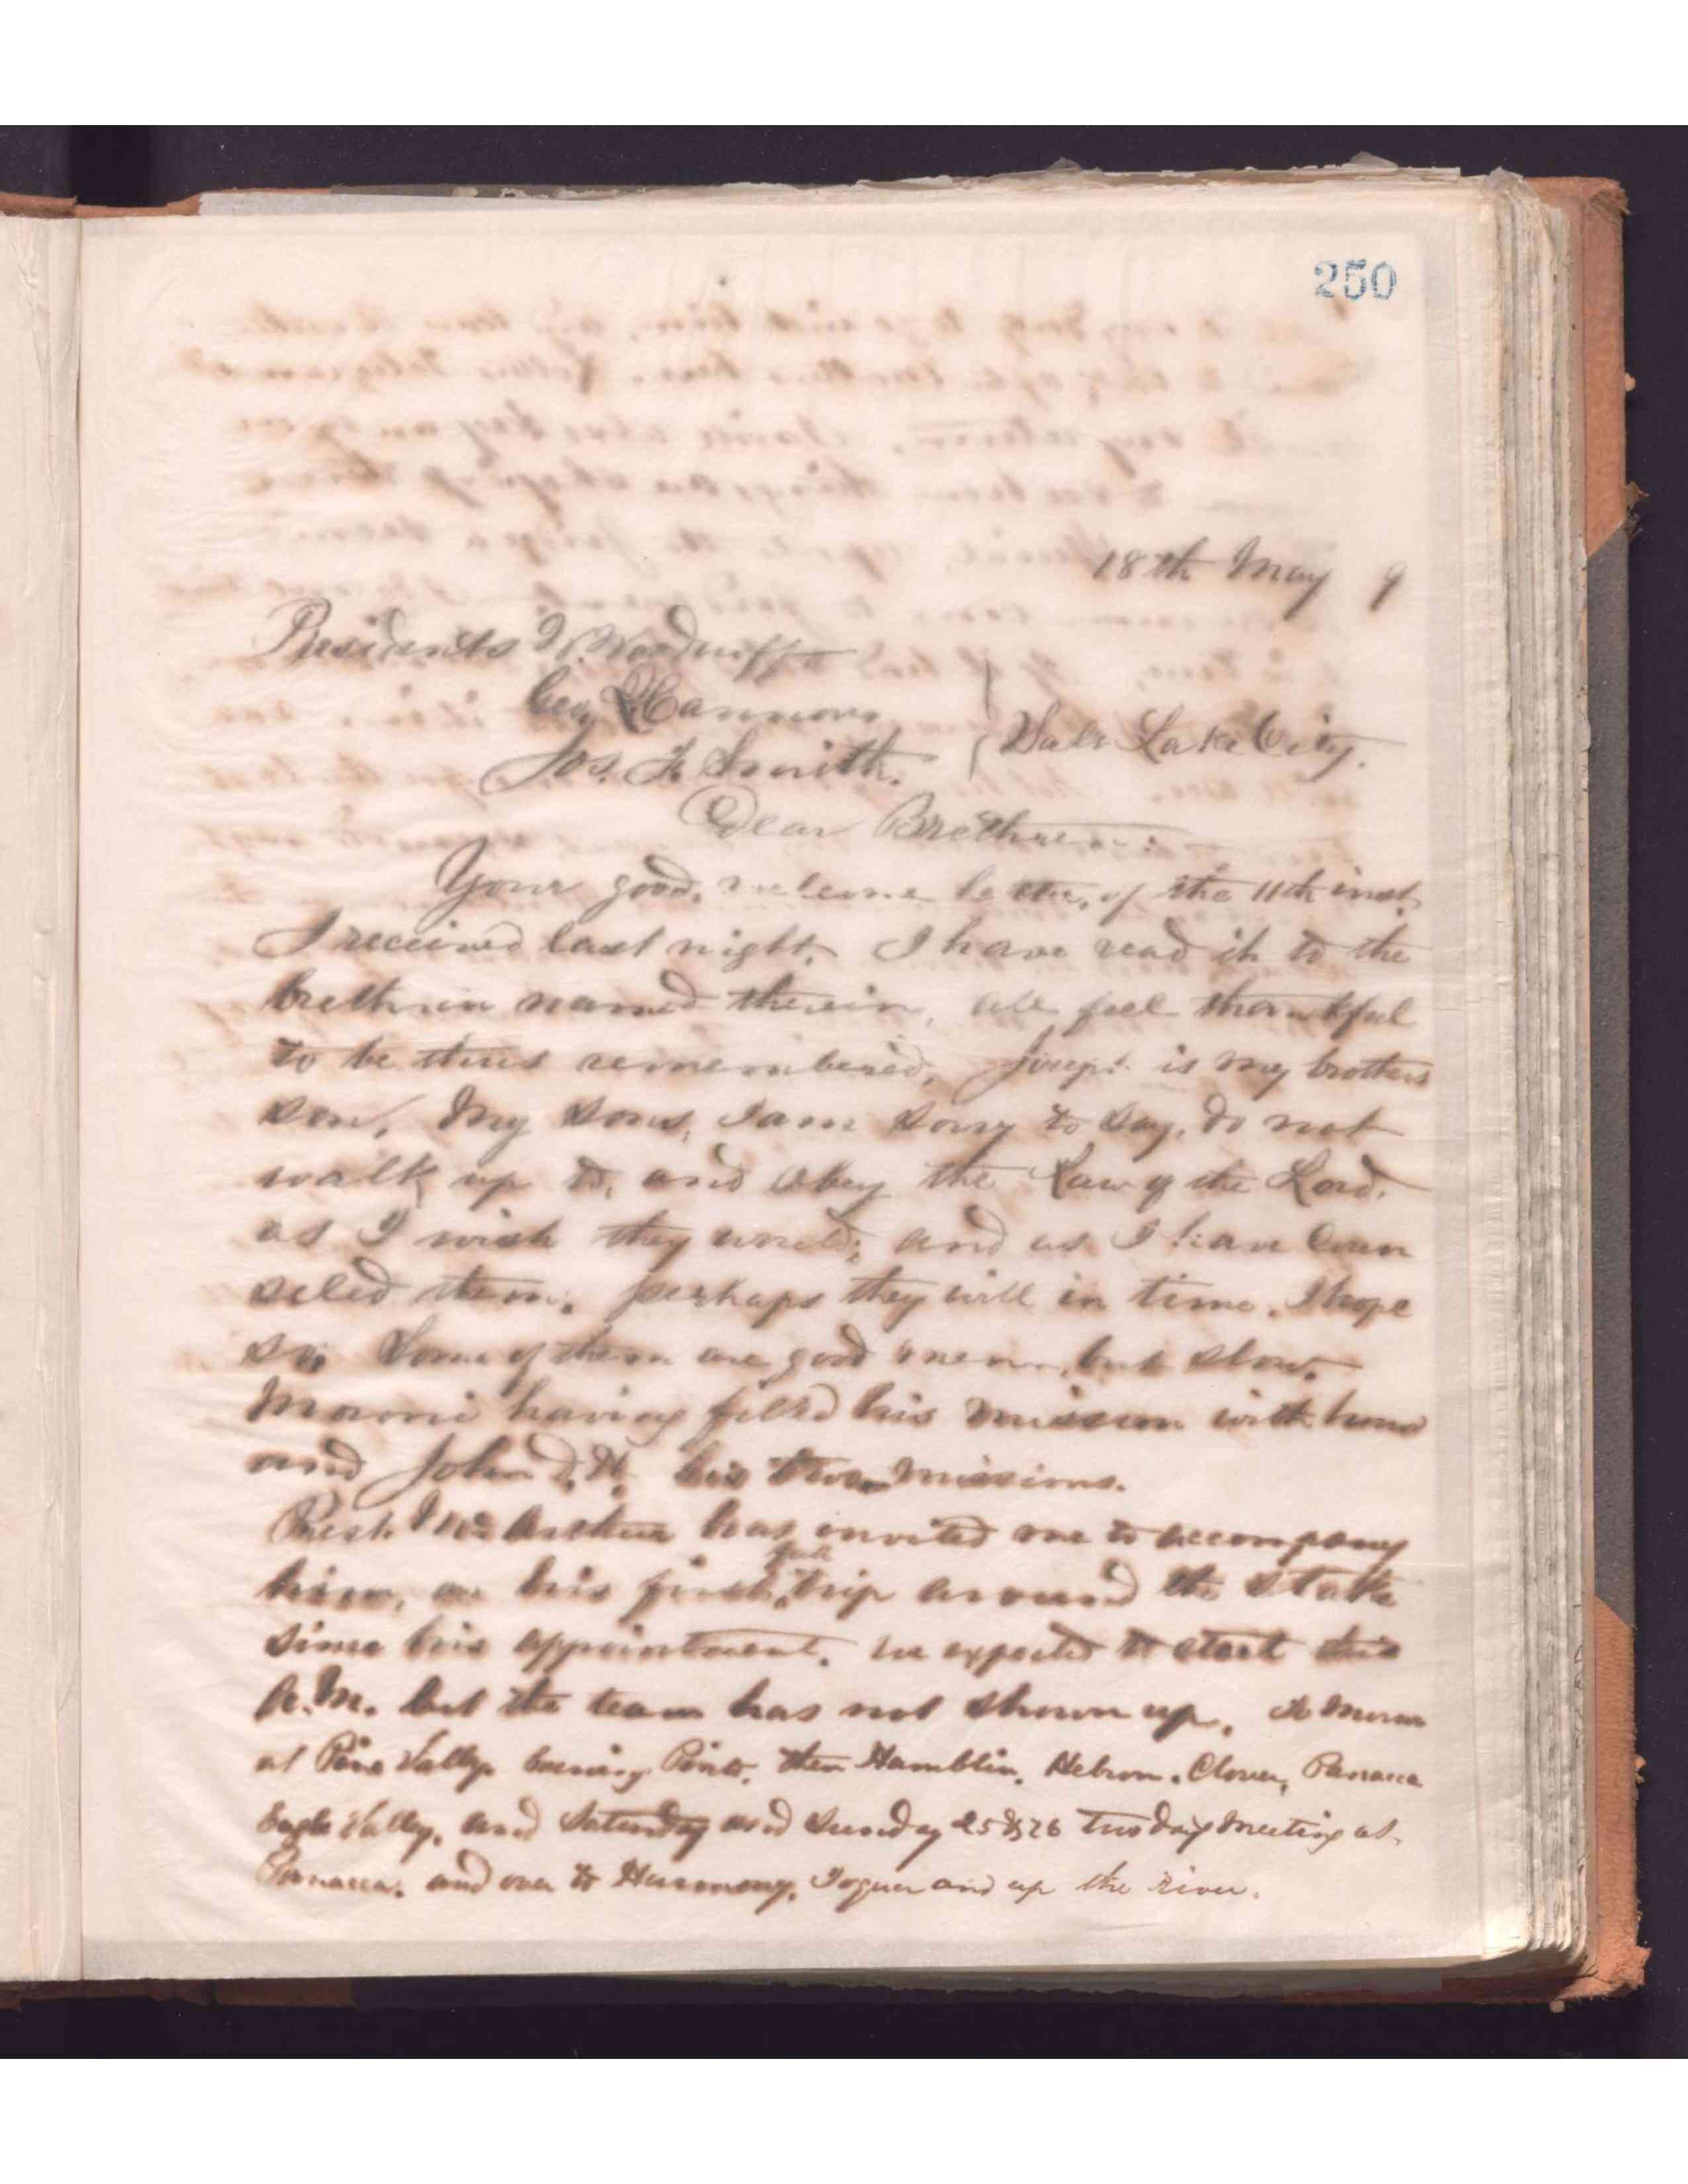 250
18th May 9
Presidents W Woodruff
Geo Q Cannon
Jos. F. Smith.
Salt Lake City.
Dear Brethren:
Your good, welcome letter, of the 11th inst.
I received last night. I have read it to the
brethren named therein, all feel thankful
to be thus remembered, Joseph is my brothers
son, My sons, I am sorry to say, do not
walk up to, and obey the Law of the Lord,
as I wish they would; and as I have coun
seled them, perhaps they will in time. I hope
so Some of them are good men, but slow,
Moroni having filld his mission with honor
and John D.H. his two missions.
Prest. McArthur has invited me to accompany
him, on his first trip around the Stake
since his appointment. we expected to start this
A.M. but the team has not shown up,
at Pine Valley evening Pinto, then Hamblin, Hebron, Clover, Panacca
Eagle Valley, and Saturday and Sunday 25 & 26 two day meeting at
Panacca, and over to Harmony, and up the river.